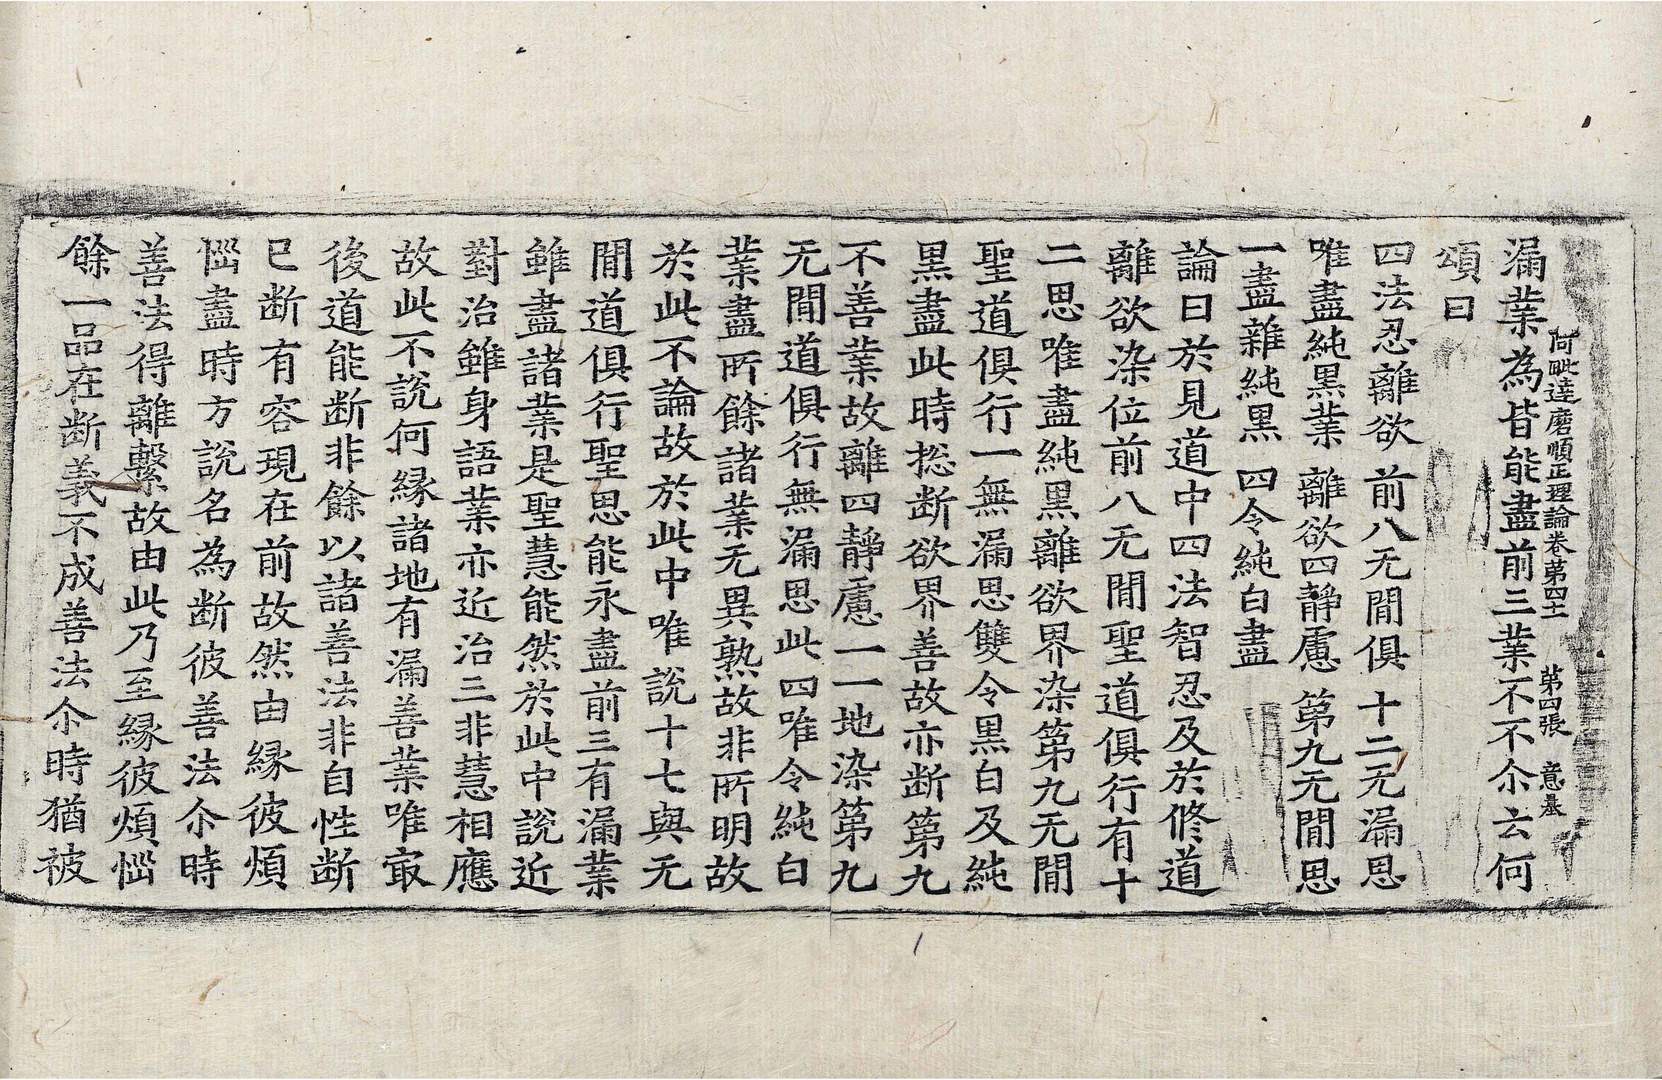 阿毗達磨順正理論卷第四十一　第四張　意墓
漏業為皆能盡前三業不不尒云何
頌曰
四法忍離欲　前八无閒俱　十二无漏思
唯盡純黒業　離欲四靜慮　第九无閒思
一盡雜純黒　四令純白盡
論曰於見道中四法智忍及於修道
離欲染位前八无閒聖道俱行有十
二思唯盡純黒離欲界染第九无閒
聖道俱行一無漏思雙令黒白及純
黒盡此時揔断欲界善故亦断第九
不善業故離四靜慮一一地染第九
无閒道俱行無漏思此四唯令純白
業盡所餘諸業无異熟故非所明故
於此不論故於此中唯說十七與无
閒道俱行聖思能永盡前三有漏業
雖盡諸業是聖慧能然於此中說近
對治雖身語業亦近治三非慧相應
故此不說何縁諸地有漏善業唯冣
後道能断非餘以諸善法非自性断
已断有容現在前故然由縁彼煩
惱盡時方說名為断彼善法尒時
善法得離繫故由此乃至縁彼煩惱
餘一品在断義不成善法尒時猶被